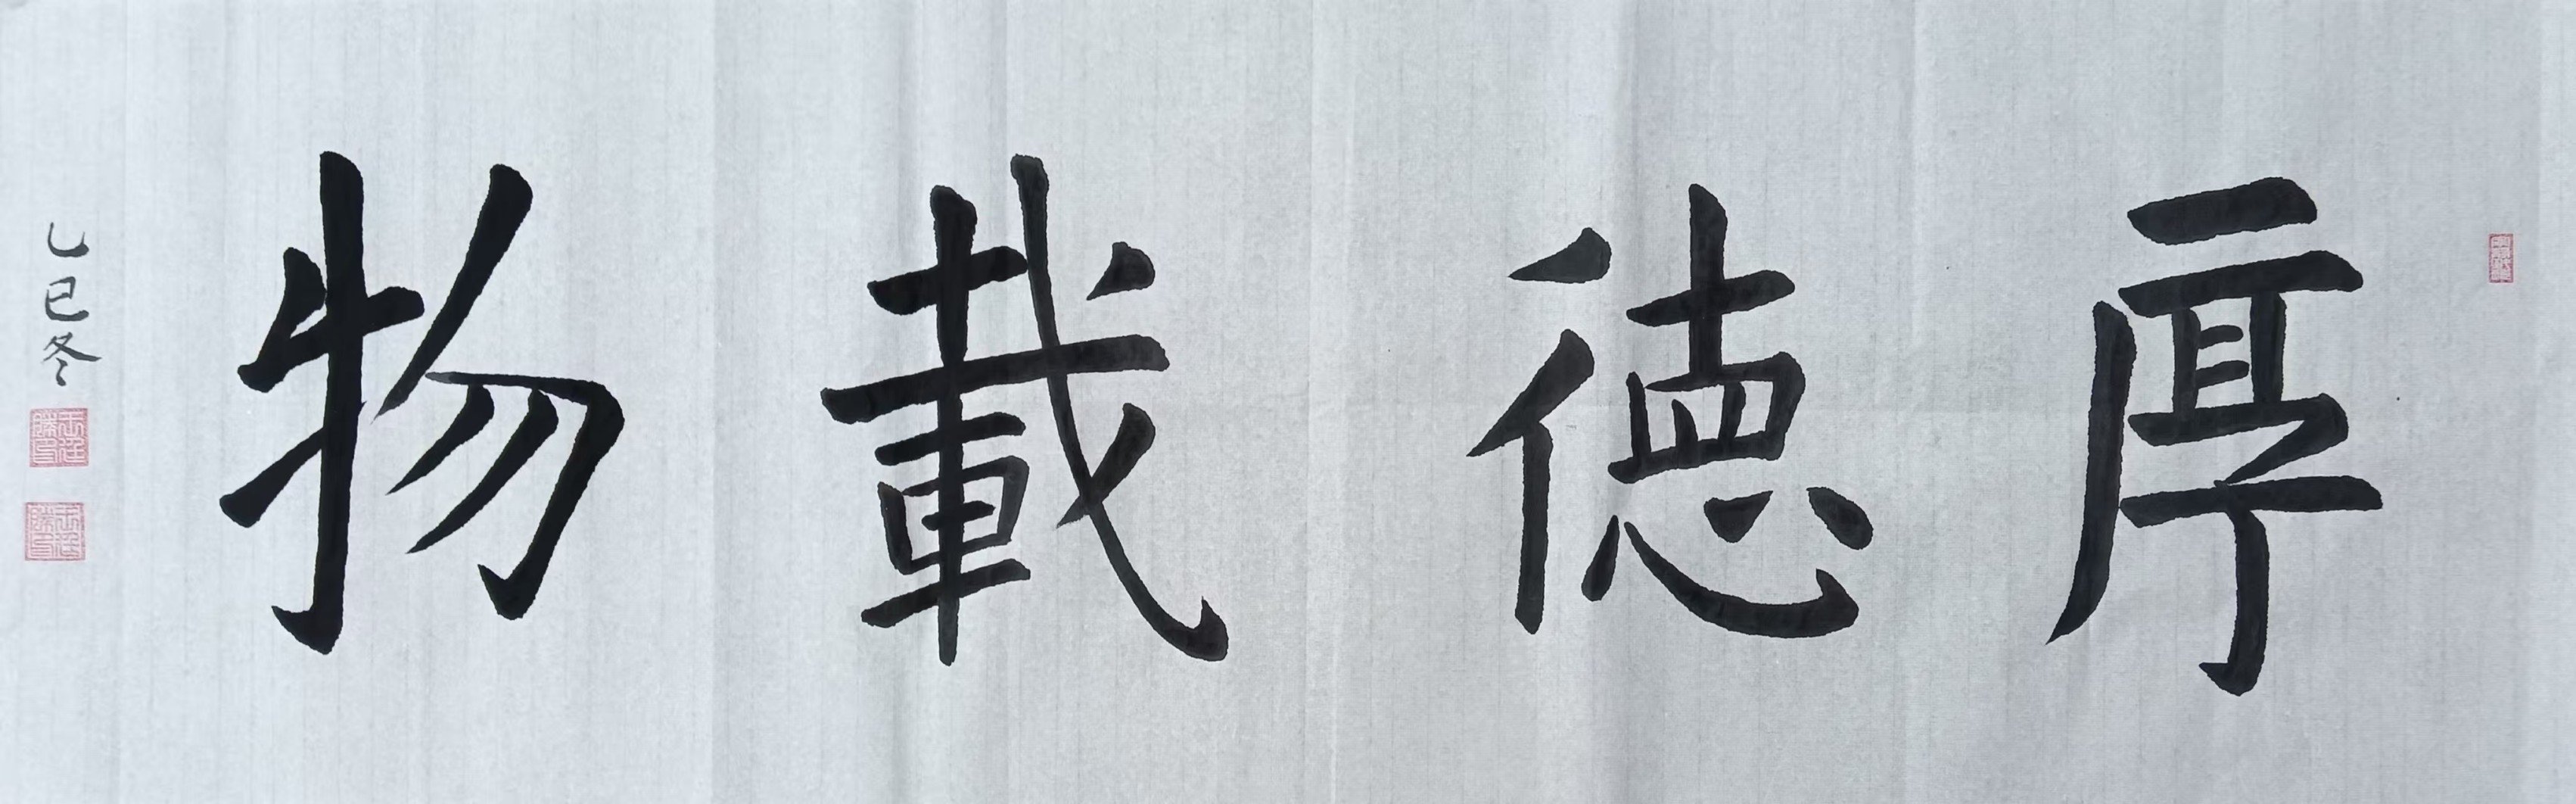 厚德載物
乙巳冬